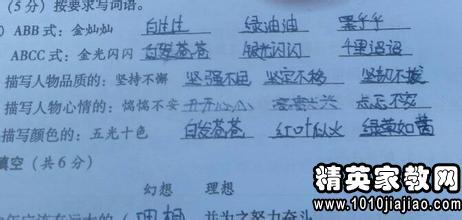 （5分）按要求写词语。
ABB 式：金灿灿 白生生 绿油油 黑乎乎
ABCC 式：金光闪闪 白发苍苍 银光闪闪
描写人物品质的：坚持不懈 坚强不屈 坚定不移 坚韧不拔
描写人物心情的：惴惴不安 忐忑不安
描写颜色的：五光十色 白发苍苍 红叶似火 绿草如茵
填空（共6分）
幻想 理想
理想 并为之努力奋斗
精英家教网
www.1010jiajiao.com